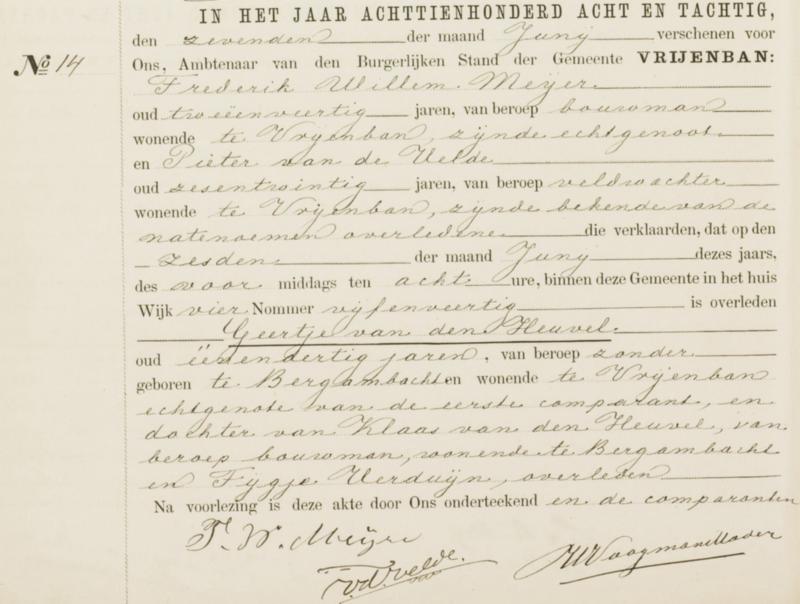 IN HET JAAR ACHTTIENHONDERD ACHT EN TACHTIG,
den zevenden der maand Juny verschenen voor
No 14 Ons, Ambtenaar van den Burgerlijken Stand der Gemeente VRIJENBAN:
Frederik Willem Meyer
oud tweëenveertig jaren, van beroep bouwman
wonende te Vryenban, zynde echtgenoot
en Pieter van de Velde
oud zesentwintig jaren, van beroep veldwachter
wonende te Vryenban, zynde bekende van de
natenoemen overledene die verklaarden, dat op den
zesden der maand Juny dezes jaars,
des voor middags ten acht ure, binnen deze Gemeente in het huis
Wijk vier Nommer vyfenveertig is overleden
Geertje van den Heuvel
oud ëenendertig jaren, van beroep zonder
geboren te Bergambacht en wonende te Vryenban
echtgenote van de eerste comparant, en
dochter van Klaas van den Heuvel, van
beroep bouwman, wonende te Bergambacht
en Fijgje Verduijn, overleden
Na voorlezing is deze akte door Ons onderteekend en de comparanten
F. W. Meijer
v. d. Velde.